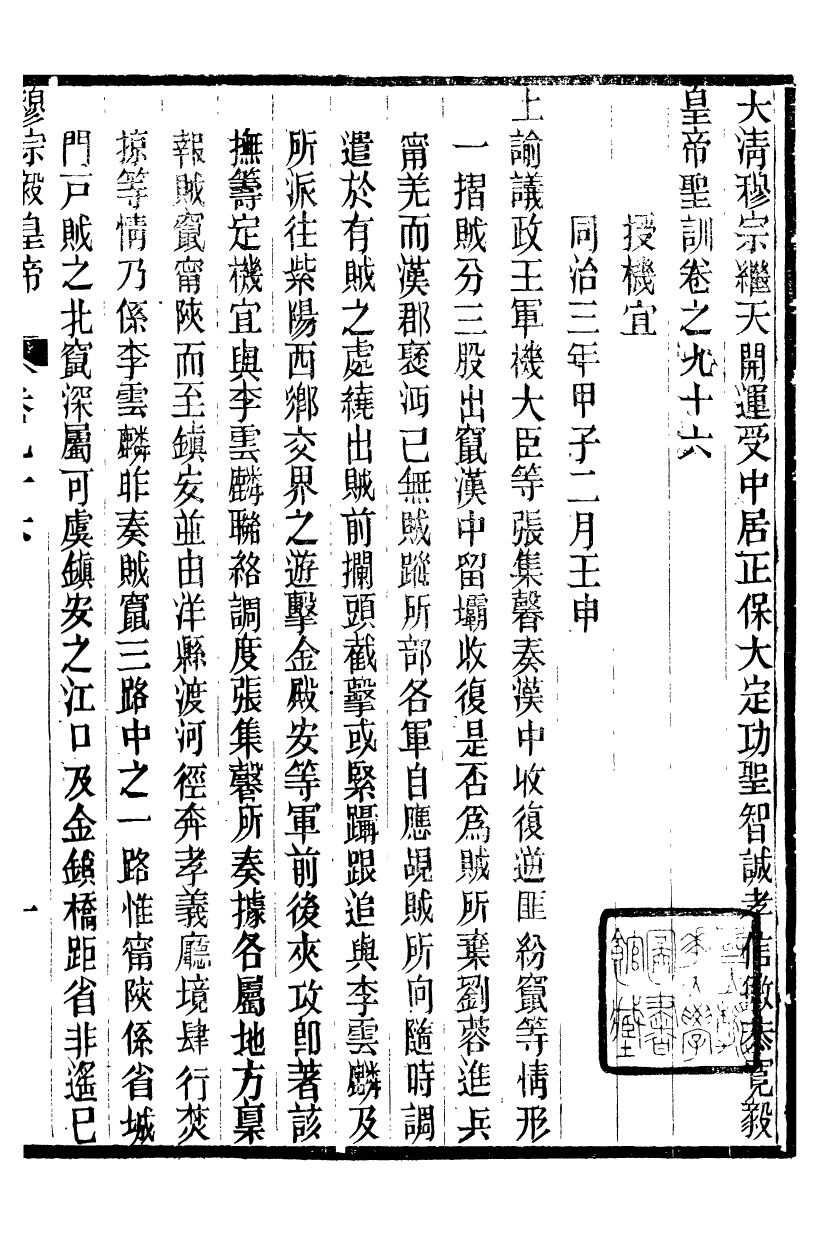 大清穆宗繼天開運受中居正保大定功聖智誠孝信敏恭寬毅
皇帝聖訓卷之九十六
授機宜
同治三年甲子二月壬申
上諭議政王軍機大臣等張集馨奏漢中收復逆匪紛竄等情形
一摺賊分三股出竄漢中留壩收復是否爲賊所棄劉蓉進兵
甯羌而漢郡褒沔已無賊蹤所部各軍自應覘賊所向隨時調
遣於有賊之處繞出賊前攔頭截擊或緊躡跟追與李雲麟及
所派往紫陽西鄉交界之遊擊金殿安等軍前後夾攻卽著該
撫籌定機宜與李雲麟聯絡調度張集馨所奏據各屬地方稟
報賊竄甯陝而至鎮安並由洋縣渡河徑奔孝義廳境肆行焚
掠等情乃係李雲麟昨奏賊竄三路中之一路惟甯陝係省城
門戶賊之北竄深屬可虞鎮安之江口及金鎖橋距省非遙已
穆宗毅皇帝 卷九十六 一